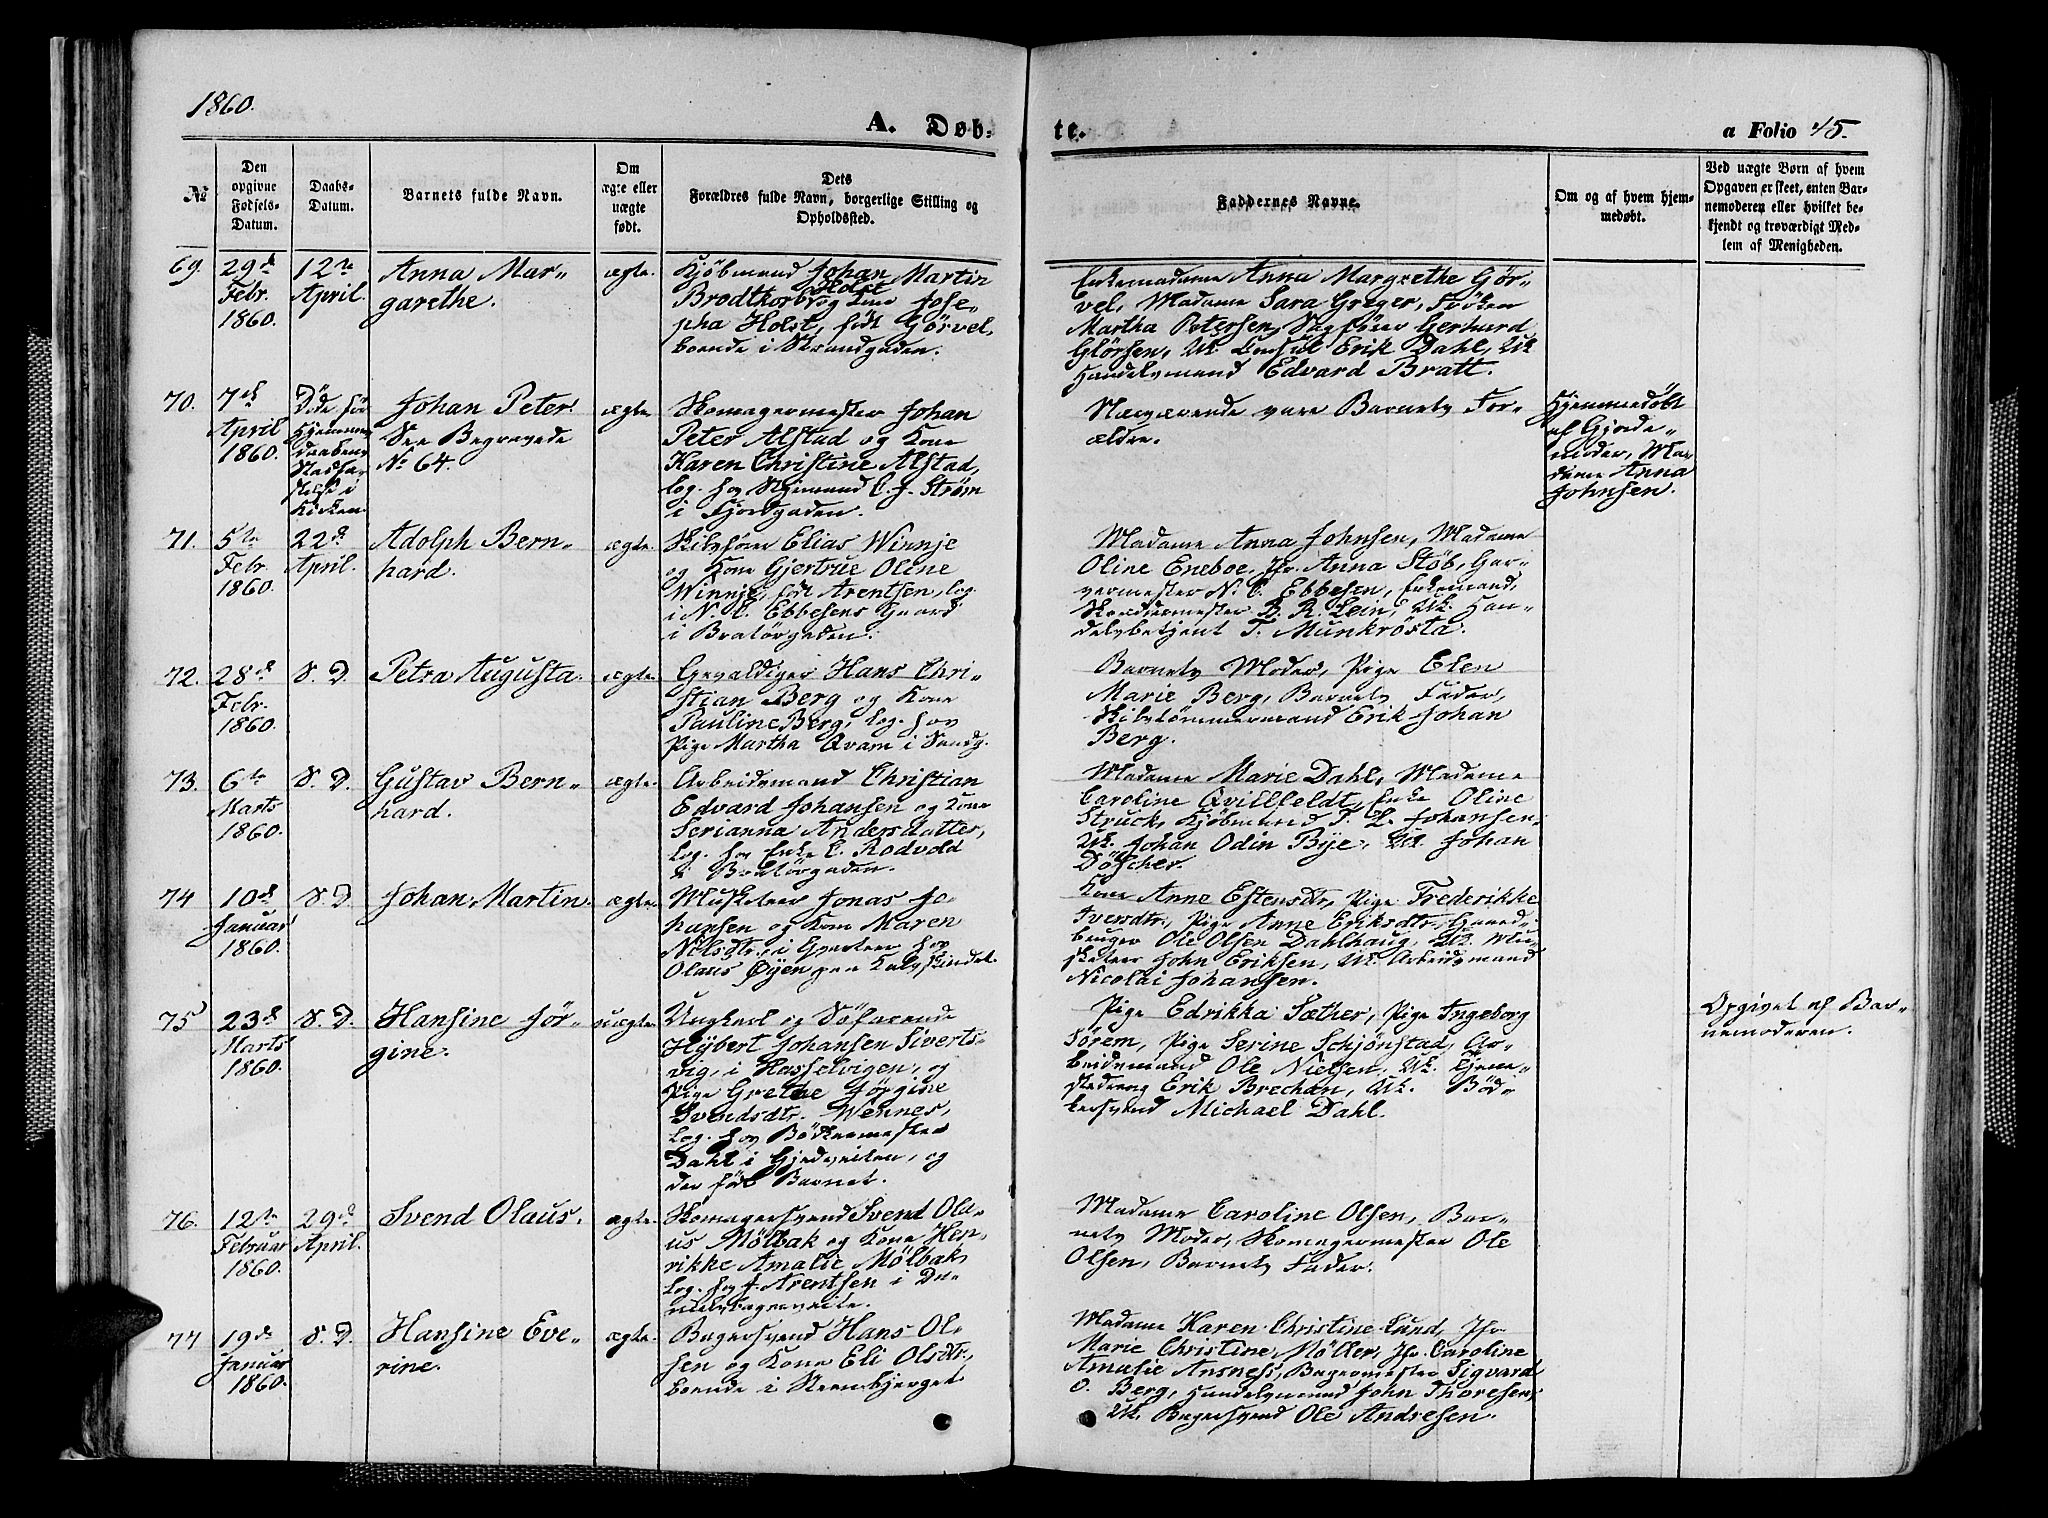 1860.
A. Døb-
te.
a Folio 45.
№
Den
opgivne
Fødsels-
Datum.
Daabs-
Datum.
Barnets fulde Navn.
Om
ægte eller
uægte
født.
Dets
Forældres fulde Navn, borgerlige Stilling og
Opholdssted.
Faddernes Navne.
Om og af hvem hjem-
medøbt.
Ved uægte Børn af hvem
Opgaven er skeet, enten Bar-
nemoderen eller hvilket be-
kjendt og troværdigt Med-
lem af Menigheden.
69.
29de
Febr.
1860.
12te
April.
Anna Mar-
garethe.
ægte.
Kjøbmand Johan Martin
Holst
Brodtkorb og Kone Jose-
pha Holst, født Gørvel,
boende i Strandgaden.
Enkemadame Anna Margrethe Gör-
vel, Madame Sara Greger, Frøken
Martha Petersen, Sagfører Gerhard
Glörsen, Uk. Consul Erik Dahl, Uk
Handelsmand Edvard Bratt.
70.
7de
April
1860.
Döde før
Hjemme-
daabens
Stadfæ-
stelse i
Kirken.
Johan Peter.
See Begravede
No 64.
ægte.
Skomagermester Johan
Peter Alstad og Kone
Karen Christine Alstad,
log. hos C. J. Strøm
i Fjordgaden.
Nærværende vare Barnets For-
ældre.
Hjemmedøbt
af Gjorde-
moder, Ma-
dame Anna
Johnsen.
71.
5te
Febr.
1860.
22de
April.
Adolph Bern-
hard.
ægte.
Skibsfører Elias Winnje
og Kone Gjertrue Oline
Winnje, født Arentsen, log.
i N. C. Ebbesens Gaard
i Bratörgaden.
Madame Anna Johnsen, Madame
Oline Eneboe, Jfr. Anna Stöb, Gar-
vermester N. C. Ebbesen, Enkemand,
Skrædermester B. R. Lein, Uk. Han-
delsbetjent T. Munkrösta.
72.
28de
Febr.
1860.
S. D.
Petra Augusta.
ægte.
Gevaldiger Hans Chri-
stian Berg og Kone
Pauline Berg, log. hos
Pige Martha Qvam i Sandg.
Barnets Moder, Pige Elen
Marie Berg, Barnets Fader,
Skibstömmermand Erik Johan
Berg.
73.
6te
Marts
1860.
S. D.
Gustav Bern-
hard.
ægte.
Arbeidsmand Christian
Edvard Johansen og Kone
Serianna Andersdatter,
log. hos Enke C. Rodvold
i Bratörgaden.
Madame Marie Dahl, Madame
Caroline Qvillfeldt, Enke Oline
Struck, Kjøbmand T. L. Johansen,
Uk. Johan Odin Bye, Uk. Johan
Döscher.
74
10de
Januar
1860.
S. D.
Johan Martin.
ægte.
Musketeer Jonas Jo-
hansen og Kone Maren
Nilsdtr., i Qvarteer hos
Olaus Øyen paa Kalvskindet.
Kone Anne Estensdtr, Pige Frederikke
Iversdtr., Pige Anne Eriksdtr., Gaard-
bruger Ole Olsen Dahlhaug, Uk. Mu-
sketeer John Eriksen, Uk. Arbeidsmand
Nicolai Johansen.
75
23de
Marts
1860.
S. D.
Hansine Jør-
gine.
uægte.
Ungkarl og Söfarende
Hybert Johansen Siverts-
vig, i Hasselvigen, og
Pige Grethe Jørgine
Svendsdtr. Wennes,
log. hos Bödkermester
Dahl i Gjedveiten, og
der født Barnet.
Pige Edrikka Sæther, Pige Ingeborg
Sörem, Pige Serine Schjönstad, Ar-
beidsmand Ole Nielsen, Uk. Tjene-
stedreng Erik Brechan, Uk. Böd-
kersvend Michael Dahl.
Opgivet af Bar-
nemoderen.
76.
12te
Februar
1860.
29de
April.
Svend Olaus.
ægte.
Skomagersvend Svend Ola-
us Mölbak og Kone Hen-
rikke Amalie Mölbak,
log. hos J. Arentsen i Da-
nielsbagerveite.
Madame Caroline Olsen, Bar-
nets Moder, Skomagermester Ole
Olsen, Barnets Fader.
77
19de
Januar
1860.
S. D.
Hansine Eve-
rine.
ægte.
Bagersvend Hans Ol-
sen og Kone Eli Olsdtr.,
boende i Steenbjerget
Madame Karen Christine Lund, Jfr.
Marie Christine Möller, Jfr. Caroline
Amalie Ansness, Bagermester Sigvard
O. Berg, Handelsmand John Thoresen,
Uk. Bagersvend Ole Andresen.